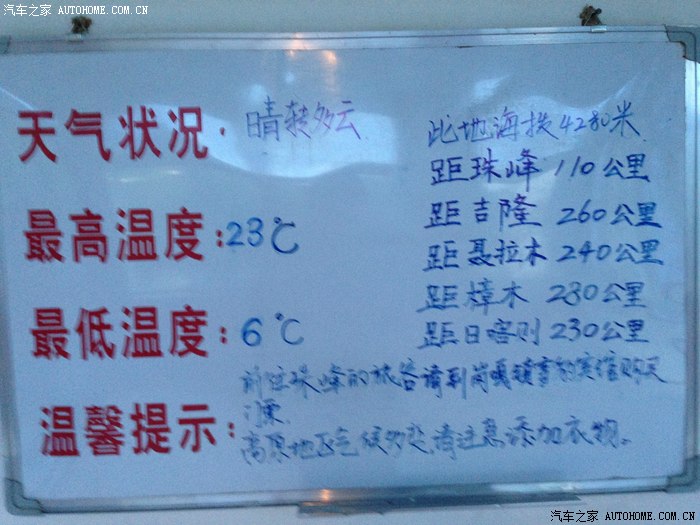 汽车之家 AUTOHOME.COM.CN
天气状况: 晴转多云
此地海拔4280米
距珠峰 110公里
最高温度:23℃
距吉隆 260公里
距聂拉木 240公里
最低温度: 6℃
距樟木 280公里
距日喀则 230公里
温馨提示:
前往珠峰的旅客请到岗嘎镇雪豹宾馆购买
门票
高原地区气候多变,请注意添加衣物。
汽车之家 AUTOHOME.COM.CN